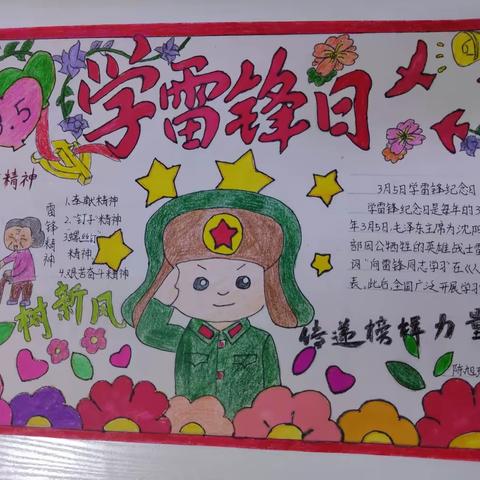 学雷锋日
3.5
精神
雷锋精神
1.奉献精神
2."钉子"精神
3.螺丝钉
精神
4.艰苦奋斗精神
树新风
3月5日学雷锋纪念日
学雷锋纪念日是每年的3
年3月5日,毛泽东主席为沈阳
部因公牺牲的英雄战士雷
词"向雷锋同志学习"在《人
表,此后,全国广泛开展学习
传递榜样力量
陈旭